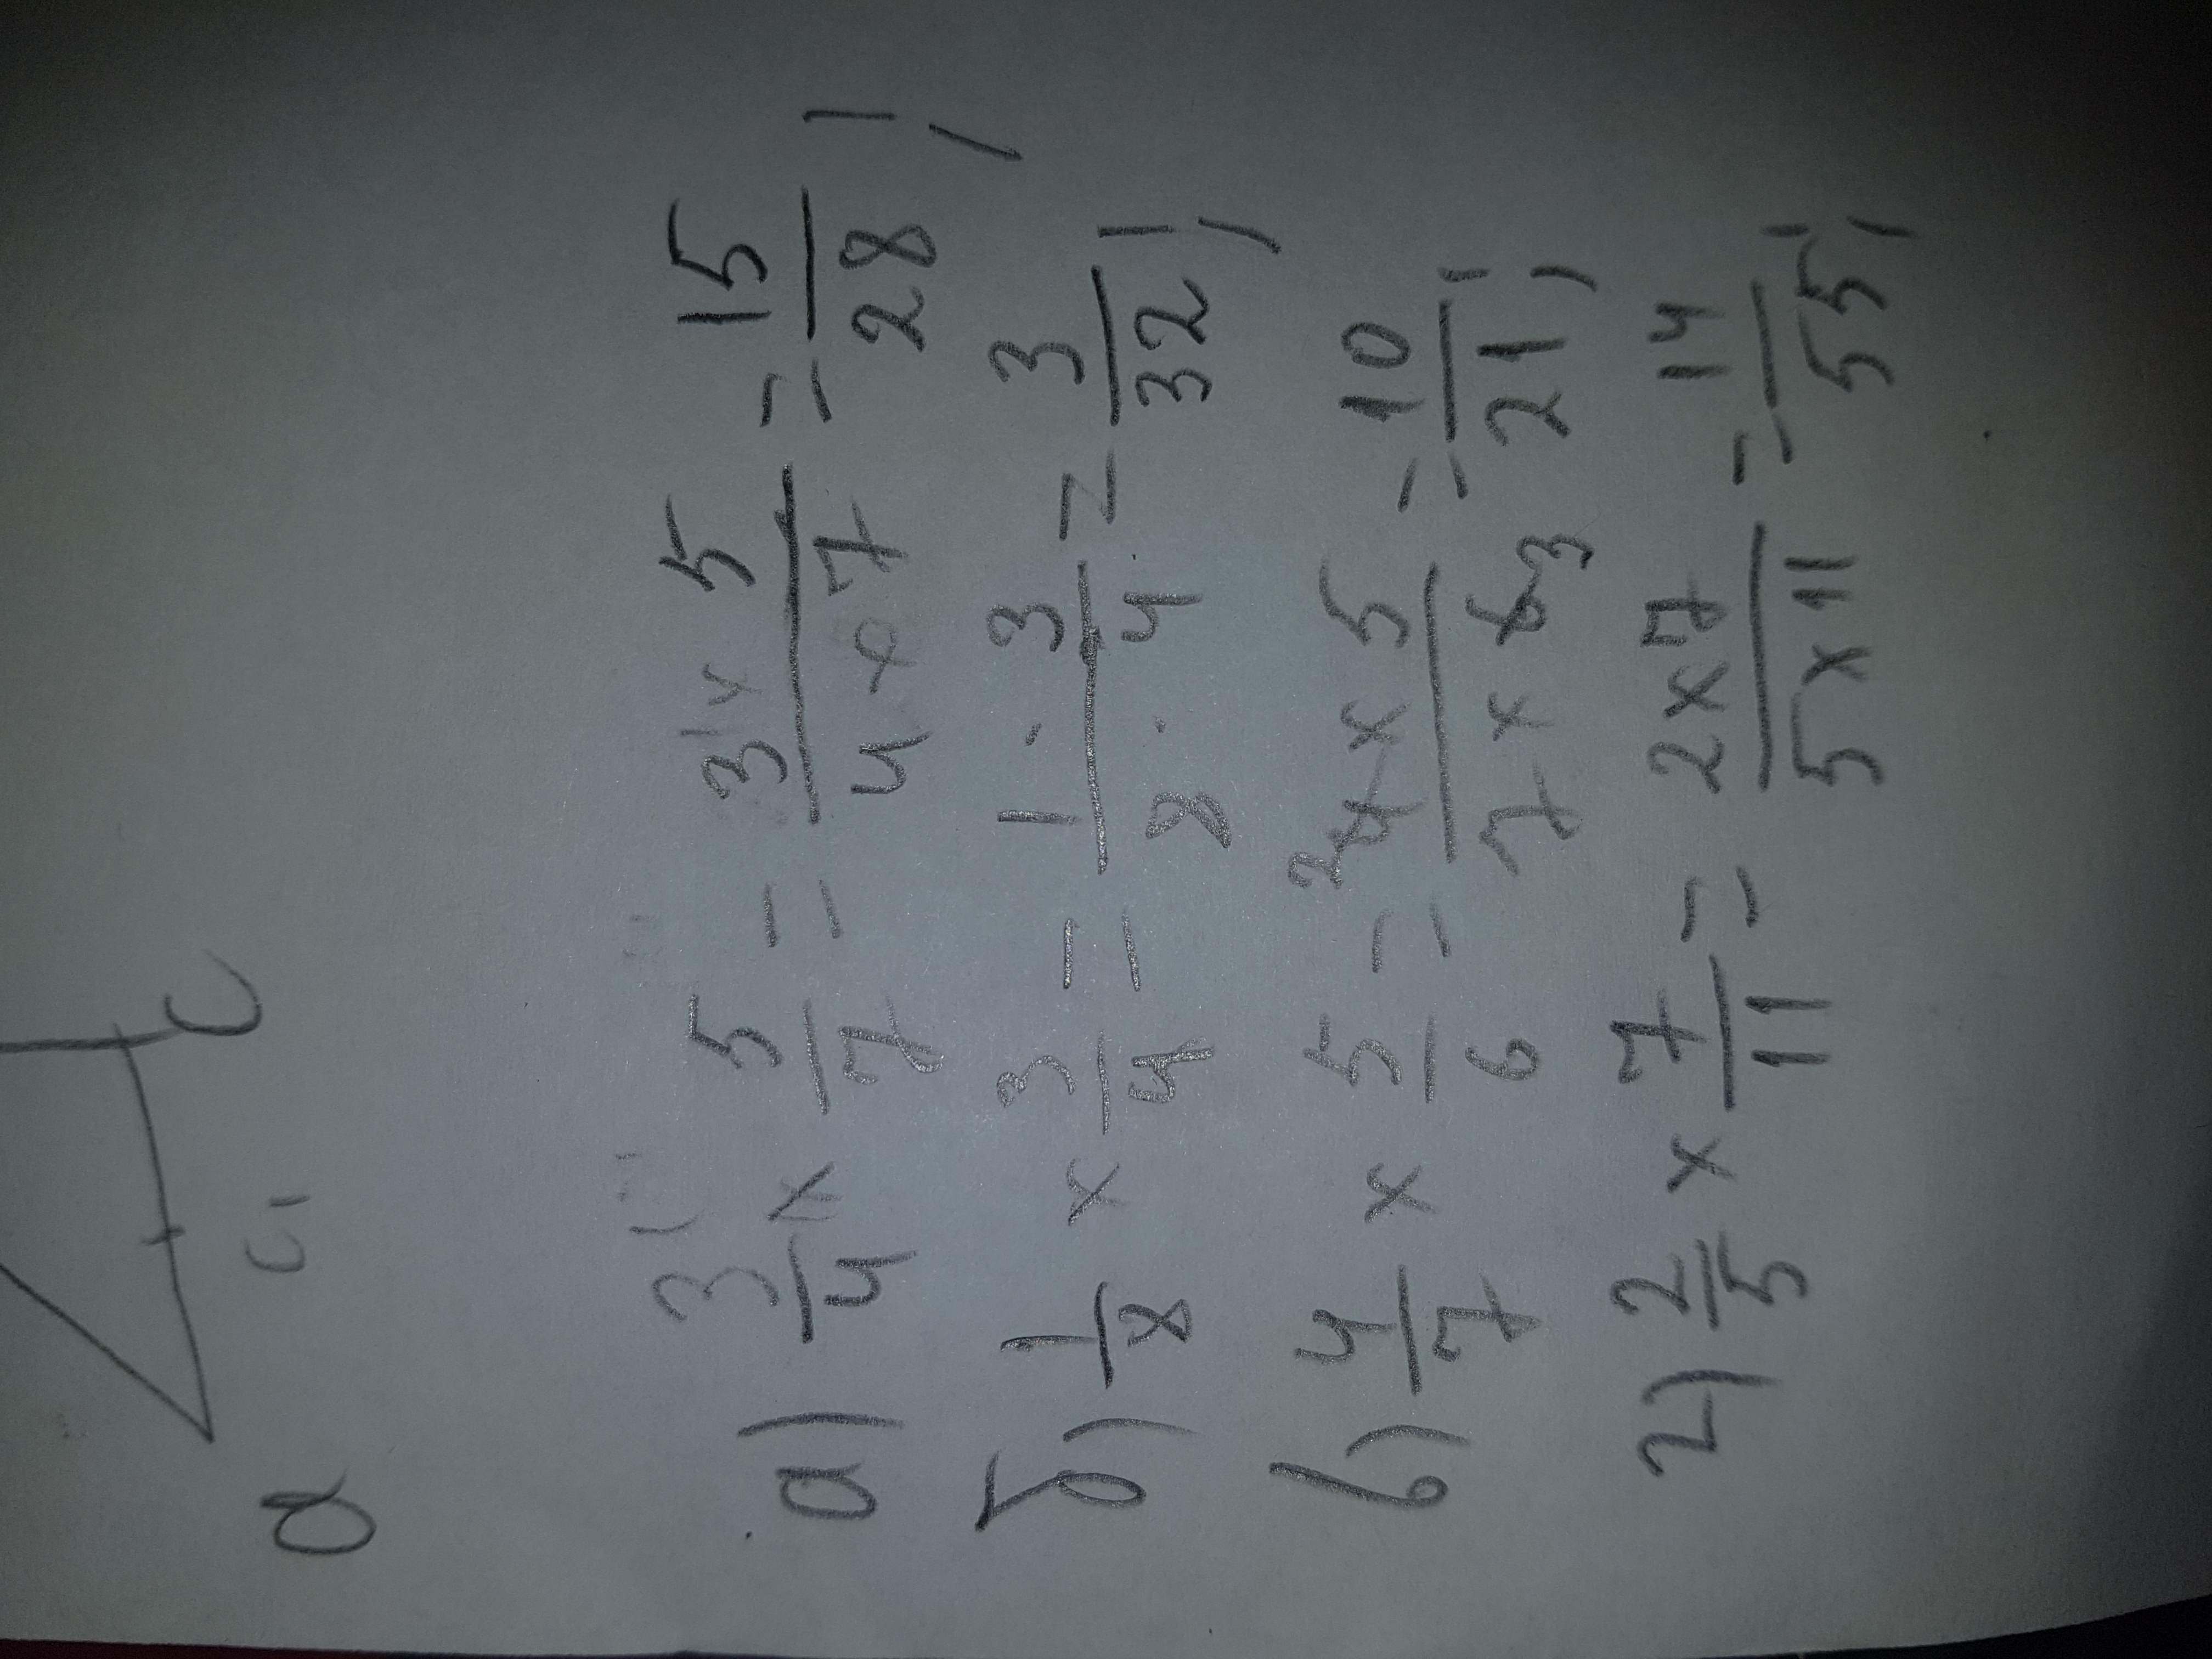 a C1 C
а) 3/4 x 5/7 = 3 x 5/4 x 7 = 15/28;
б) 1/8 x 3/4 = 1 · 3/8 · 4 = 3/32;
в) 4/7 x 5/6 = 2 4 x 5/7 x 6 3 = 10/21;
г) 2/5 x 7/11 = 2 x 7/5 x 11 = 14/55;